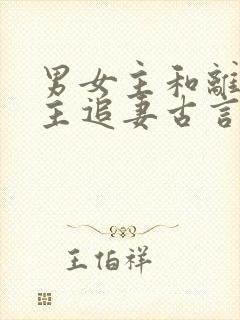 男女主和離
主追妻古言
王伯祥